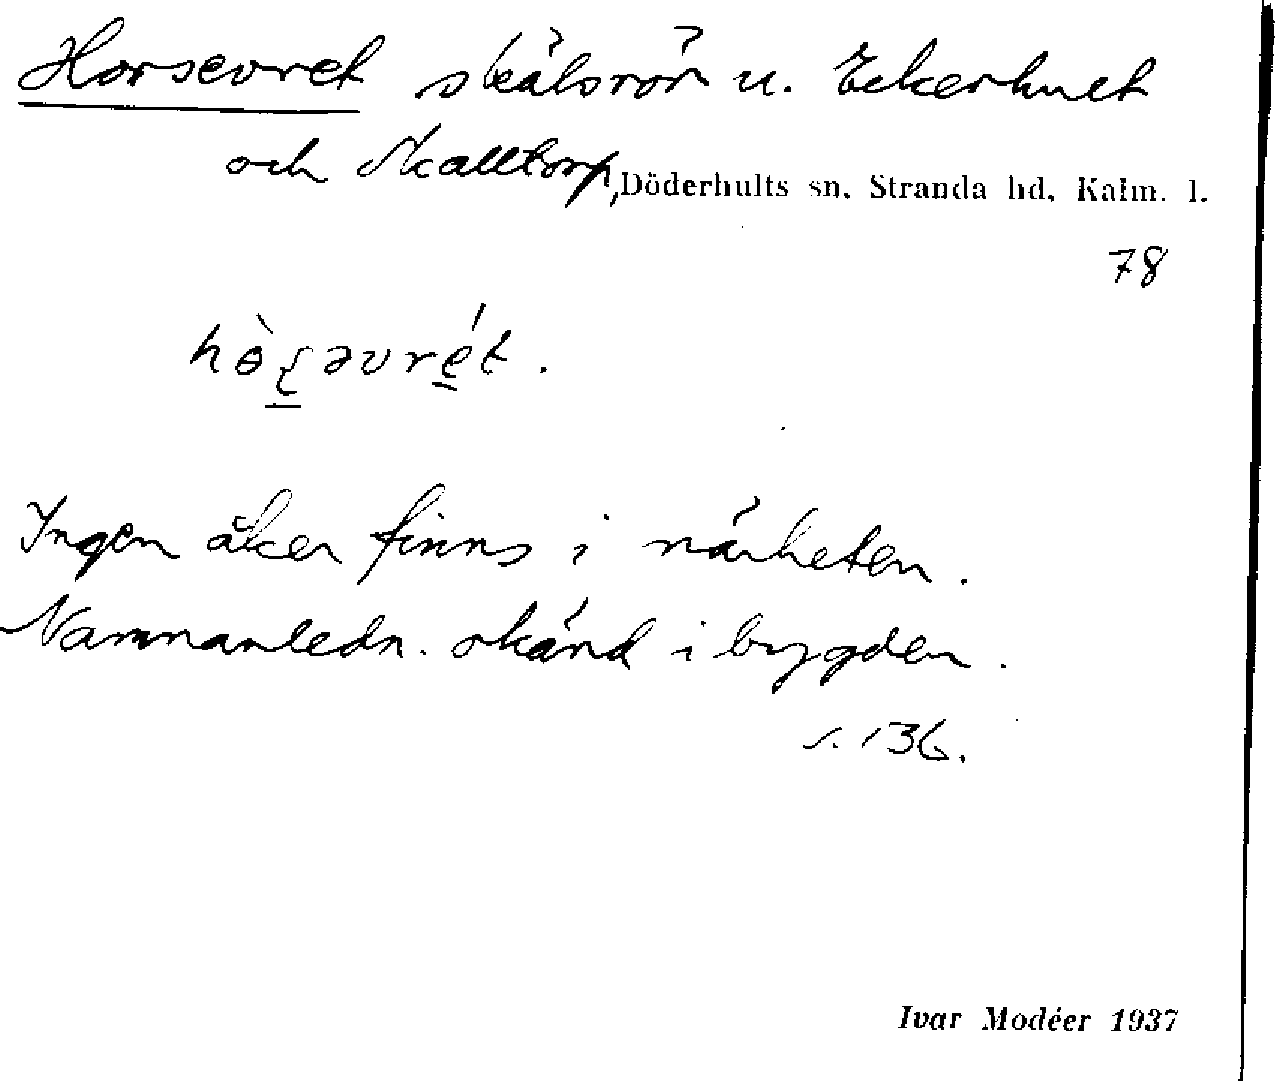 Horsevret skälsrör u. Eckerhult
och Skalltorp, Döderhults sn. Stranda hd, Kalm. l.
78
Ingen åker finns i närheten.
Namnanledn. okänd i bygden.
s. 136.
Ivar Modéer 1937